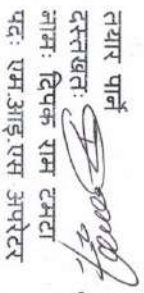 तयार पार्ने
दस्तखत:
नाम: दिपक राम टमटा
पद: एम.आइ.एस अपरेटर